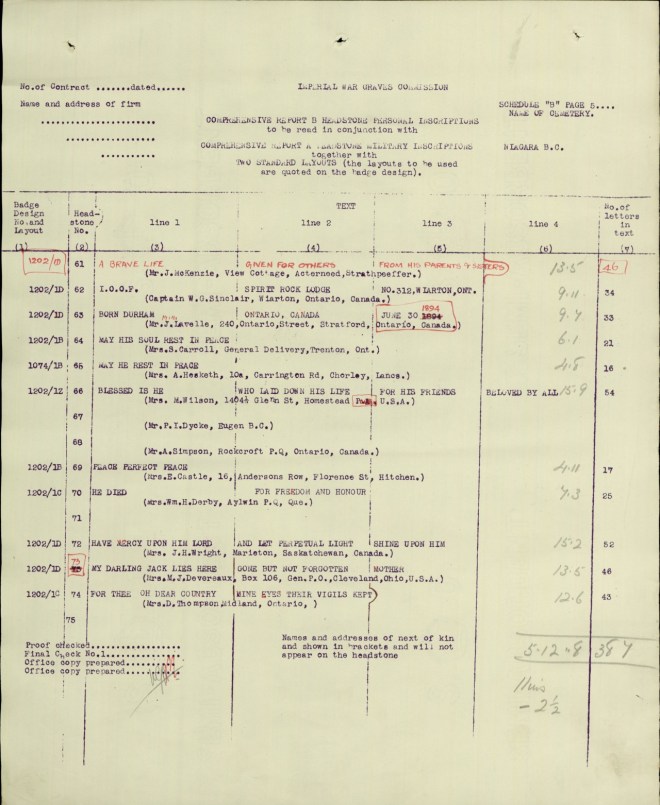 No.of Contract .......dated......
IMPERIAL WAR GRAVES COMMISSION
Name and address of firm
SCHEDULE "B" PAGE 5....
NAME OF CEMETERY.
COMPREHENSIVE REPORT B HEADSTONE PERSONAL INSCRIPTIONS
to be read in conjunction with
COMPREHENSIVE REPORT A HEADSTONE MILITARY INSCRIPTIONS
NIAGARA B.C.
together with
TWO STANDARD LAYOUTS (the layouts to be used
are quoted on the badge design).
Badge Design No.and Layout Head-stone No. TEXT No.of letters in text
line 1 line 2 line 3 line 4
(1) (2) (3) (4) (5) (6) (7)
1202/1D 61 A BRAVE LIFE GIVEN FOR OTHERS FROM HIS PARENTS & SISTERS 13.5 46
(Mr.J.McKenzie, View Cottage, Acterneed,Strathpeffer.)
1202/1D 62 I.O.O.F. SPIRIT ROCK LODGE NO.312,WIARTON,ONT. 9.11 34
(Captain W.G.Sinclair, Wiarton, Ontario, Canada.)
1202/1D 63 BORN DURHAM ONTARIO, CANADA JUNE 30 1894 9.7 33
(Mr.J.Lavelle, 240,Ontario,Street, Stratford, Ontario, Canada.)
1202/1B 64 MAY HIS SOUL REST IN PEACE 6.1 21
(Mrs.S.Carroll, General Delivery,Trenton, Ont.)
1074/1B 65 MAY HE REST IN PEACE 4.8 16
(Mrs. A.Hesketh, 10a, Carrington Rd, Chorley, Lancs.)
1202/1Z 66 BLESSED IS HE WHO LAID DOWN HIS LIFE FOR HIS FRIENDS BELOVED BY ALL 15.9 54
(Mrs. M.Wilson, 1404½ Glenn St, Homestead Pa. U.S.A.)
67
(Mr.P.I.Dycke, Eugen B.C.)
68
(Mr.A.Simpson, Rockcroft P.Q, Ontario, Canada.)
1202/1B 69 PEACE PERFECT PEACE 4.11 17
(Mrs.E.Castle, 16, Andersons Row, Florence St, Hitchen.)
1202/1C 70 HE DIED FOR FREEDOM AND HONOUR 7.3 25
(Mrs.Wm.H.Derby, Aylwin P.Q, Que.)
71
1202/1D 72 HAVE MERCY UPON HIM LORD AND LET PERPETUAL LIGHT SHINE UPON HIM 15.2 52
(Mrs. J.H.Wright, Marieton, Saskatchewan, Canada.)
1202/1D 73 MY DARLING JACK LIES HERE GONE BUT NOT FORGOTTEN MOTHER 13.5 46
(Mrs.M.J.Devereaux, Box 106, Gen.P.O.,Cleveland,Ohio,U.S.A.)
1202/1C 74 FOR THEE OH DEAR COUNTRY MINE EYES THEIR VIGILS KEPT 12.6 43
(Mrs.D.Thompson,Midland, Ontario, )
75
Proof checked................
Final Check No.1.............
Office copy prepared.........
Office copy prepared.........
Names and addresses of next of kin
and shown in brackets and will not
appear on the headstone
5.12.8 387
- 2½